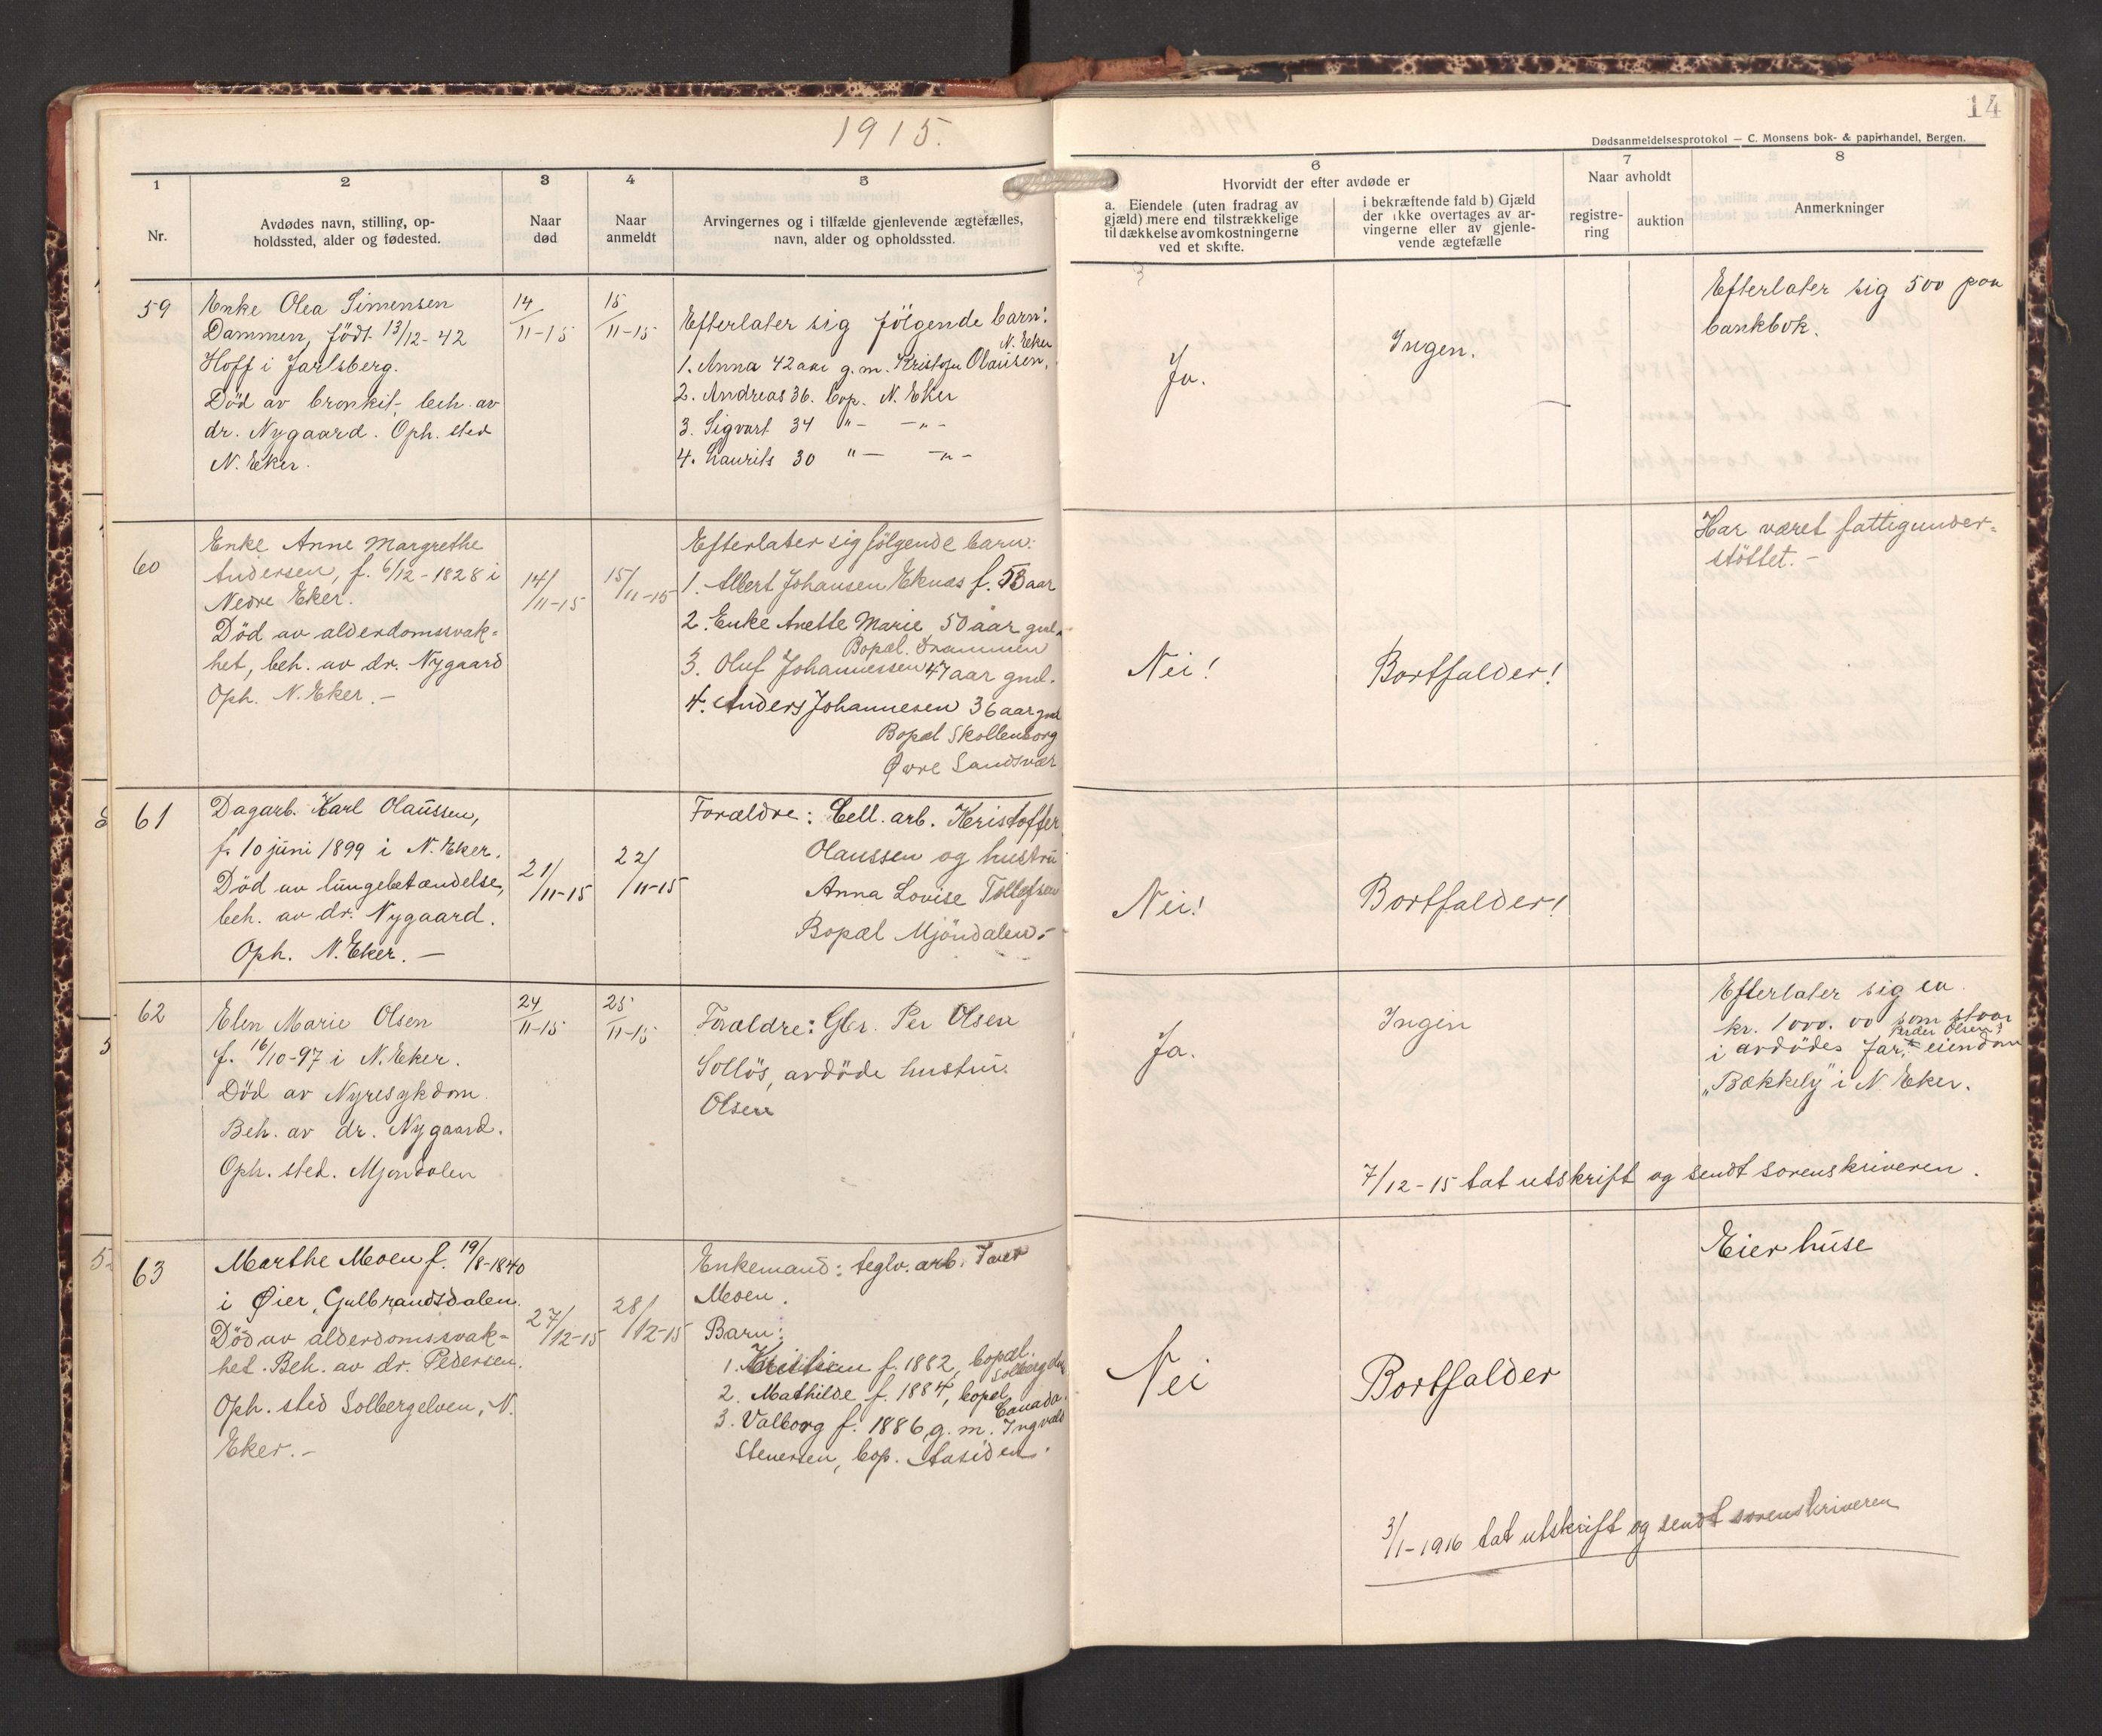 1915.
14
Dødsanmeldelsesprotokol — C. Monsens bok- & papirhandel, Bergen.
1
Nr.
2
Avdødes navn, stilling, op-
holdssted, alder og fødested.
3
Naar
død
4
Naar
anmeldt
5
Arvingernes og i tilfælde gjenlevende ægtefælles,
navn, alder og opholdssted.
6
Hvorvidt der efter avdøde er
a. Eiendele (uten fradrag av
gjæld) mere end tilstrækkelige
til dækkelse av omkostningerne
ved et skifte.
i bekræftende fald b) Gjæld
der ikke overtages av ar-
vingerne eller av gjenle-
vende ægtefælle
7
Naar avholdt
registre-
ring
auktion
8
Anmerkninger
59
Enke Olea Simensen
Dammen, født 13/12-42
Hoff i Jarlsberg.
Död av bronkit, beh. av
dr. Nygaard. Oph. sted
N. Eker.
14/11-15
15/11-15
Efterlater sig følgende barn:
N. Eker
1. Anna 42 aar g.m. Kristofer Olausen,
2. Andreas 36. bop. N. Eker
3. Sigvart 34 "— —"—
4. Laurits 30 "— —"—
Ja.
Ingen.
Efterlater sig 500 paa
bankbok.
60
Enke Anne Margrethe
Andersen, f. 6/12-1828 i
Nedre Eker.
Död av alderdomssvak=
het, beh. av dr. Nygaard
Oph. N. Eker.—
14/11-15
15/11-15
Efterlater sig følgende barn:
1. Albert Johansen Eknæs f. 53 aar
2. Enke Anette Marie 50 aar gml.
Bopæl. Drammen
3. Oluf Johannessen 47 aar gml.
4. Anders Johannesen 36 aar gml
Bopæl Skollenborg
Øvre Sandsvær
Nei!
Bortfalder!
Har været fattigunder=
støttet.—
61
Dagarb. Karl Olaussen,
f. 10 juni 1899 i N. Eker.
Död av lungebetændelse,
beh. av dr. Nygaard.
Oph. N. Eker.—
21/11-15
22/11-15
Forældre: Cell. arb. Kristoffer
Olaussen og hustru
Anna Lovise Tollefsen
Bopæl Mjöndalen.-
Nei!
Bortfalder!
62
Elen Marie Olsen
f. 16/10-97 i N. Eker.
Död av Nyresykdom.
Beh. av dr. Nygaard.
Oph. sted. Mjøndalen
24/11-15
25/11-15
Forældre: Gbr. Per Olsen
Solløs, avdöde hustru.
Olsen
Ja.
Ingen
Efterlater sig ca.
kr. 1000.00 som staar
Peder Olsens
i avdödes far, eiendom
„Bækkely" i N. Eker.
7/12-15 tat utskrift og sendt sorenskriveren.
63
Marthe Moen f. 19/8-1840
i Øier, Gulbrandsdalen.
Död av alderdomssvak-
het. Beh. av dr. Pedersen.
Oph. sted Solbergelven, N.
Eker.—
27/12-15
28/12-15
Enkemand: teglv. arb. Iver
Moen.
Barn:
1. Kristian f. 1882, bopæl.
Solbergelven
2. Mathilde f. 1884, bopæl
Canada.
3. Valborg f. 1886, g.m. Ingvald
Stenersen, bop. Aasiden.
Nei
Bortfalder
Eier huse
3/1-1916 tat utskrift og sendt sorenskriveren